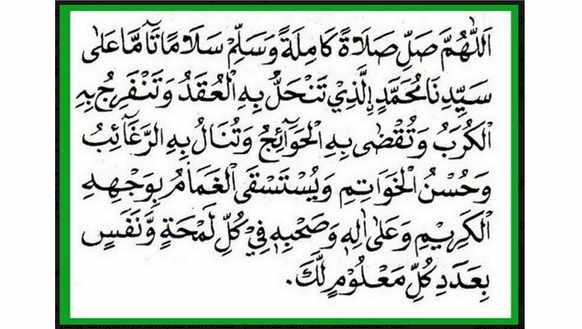 اَللّٰهُمَّ صَلِّ صَلَاةً كَامِلَةً وَسَلِّمْ سَلَامًا تَآمًّا عَلٰى
سَيِّدِنَا مُحَمَّدٍ ࣙالَّذِيْ تَنْحَلُّ بِهِ الْعُقَدُ وَتَنْفَرِجُ بِهِ
الْكُرَبُ وَتُقْضٰى بِهِ الْحَوَآئِجُ وَتُنَالُ بِهِ الرَّغَآئِبُ
وَحُسْنُ الْخَوَاتِمِ وَيُسْتَسْقَى الْغَمَامُ بِوَجْهِهِ
الْكَرِيْمِ وَعَلٰى اٰلِهٖ وَصَحْبِهٖ فِيْ كُلِّ لَمْحَةٍ وَّنَفَسٍ
بِعَدَدِ كُلِّ مَعْلُوْمٍ لَّكَ.